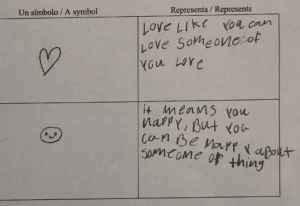 Un símbolo / A symbol
Representa / Represents
Love Like You can
Love Someone of
You Love
it means you
happy, But you
can Be Happy about
someone of thing